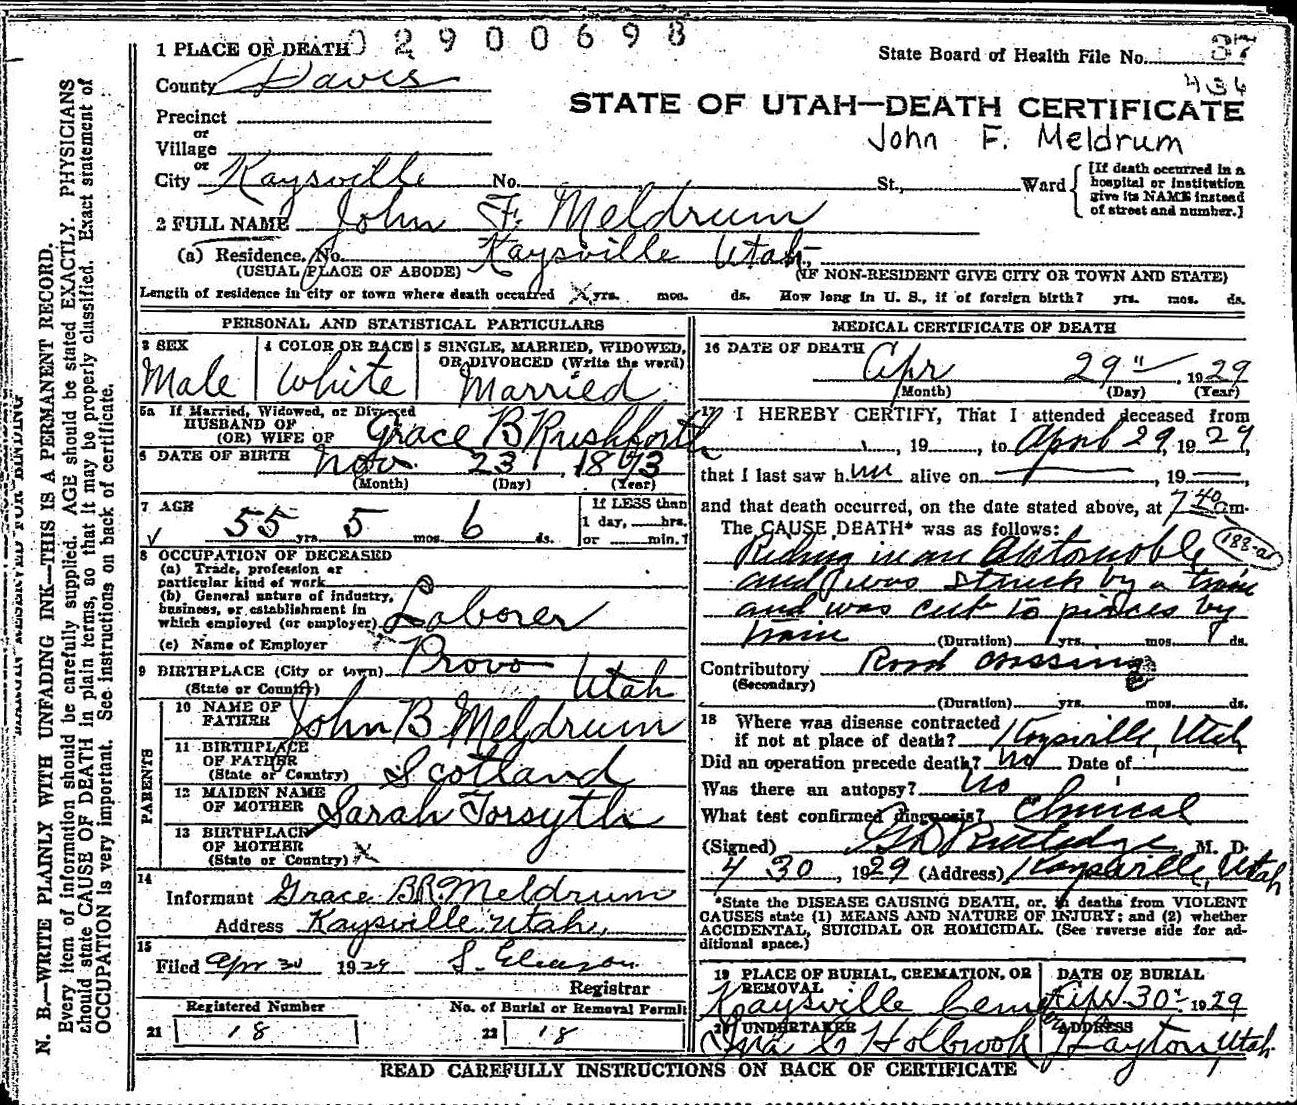 02900698
1 PLACE OF DEATH
State Board of Health File No. 87
County Davis
436
STATE OF UTAH—DEATH CERTIFICATE
Precinct
or
John F. Meldrum
Village
or
City Kaysville No. St., Ward
[If death occurred in a
hospital or institution
give its NAME instead
of street and number.]
2 FULL NAME John F. Meldrum
(a) Residence. No. Kaysville Utah
(USUAL PLACE OF ABODE)
(IF NON-RESIDENT GIVE CITY OR TOWN AND STATE)
Length of residence in city or town where death occurred X yrs. mos. ds. How long in U. S., if of foreign birth? yrs. mos. ds.
PERSONAL AND STATISTICAL PARTICULARS
3 SEX
Male
4 COLOR OR RACE
White
5 SINGLE, MARRIED, WIDOWED,
OR DIVORCED (Write the word)
Married
5a If Married, Widowed, or Divorced
HUSBAND OF
(OR) WIFE OF Grace B Rushforth
6 DATE OF BIRTH Nov. 23 1873
(Month) (Day) (Year)
7 AGE
55 yrs. 5 mos. 6 ds.
If LESS than
1 day, hrs.
or min.?
8 OCCUPATION OF DECEASED
(a) Trade, profession or
particular kind of work
(b) General nature of industry,
business, or establishment in
which employed (or employer) Laborer
(c) Name of Employer
9 BIRTHPLACE (City or town) Provo
(State or Country) Utah
PARENTS
10 NAME OF
FATHER John B Meldrum
11 BIRTHPLACE
OF FATHER
(State or Country) Scotland
12 MAIDEN NAME
OF MOTHER Sarah Forsyth
13 BIRTHPLACE
OF MOTHER
(State or Country) X
14
Informant Grace B.R. Meldrum
Address Kaysville Utah,
15
Filed Apr 30 1929 S. Gleason
Registrar
Registered Number
21 18
No. of Burial or Removal Permit
22 18
MEDICAL CERTIFICATE OF DEATH
16 DATE OF DEATH
Apr 29", 1929
(Month) (Day) (Year)
17 I HEREBY CERTIFY, That I attended deceased from
, 19 , to April 29, 1929,
that I last saw him alive on , 19
and that death occurred, on the date stated above, at 7 40 am.
The CAUSE DEATH* was as follows:
188-a
Riding in an Automobile
and was struck by a train
and was cut to pieces by
train (Duration) yrs. mos. ds.
Contributory Road crossing
(Secondary)
(Duration) yrs. mos. ds.
18 Where was disease contracted
if not at place of death? Kaysville, Utah
Did an operation precede death? no Date of
Was there an autopsy? no
What test confirmed diagnosis? Clinical
(Signed) Rutledge M. D.
4 30, 1929 (Address) Kaysville, Utah
*State the DISEASE CAUSING DEATH, or, in deaths from VIOLENT
CAUSES state (1) MEANS AND NATURE OF INJURY; and (2) whether
ACCIDENTAL, SUICIDAL OR HOMICIDAL. (See reverse side for ad-
ditional space.)
19 PLACE OF BURIAL, CREMATION, OR
REMOVAL
Kaysville Cemetery
DATE OF BURIAL
Apr 30" 1929
20 UNDERTAKER
Ira C Holbrook
ADDRESS
Layton, Utah
READ CAREFULLY INSTRUCTIONS ON BACK OF CERTIFICATE
MARGIN RESERVED FOR BINDING
N. B.—WRITE PLAINLY WITH UNFADING INK—THIS IS A PERMANENT RECORD.
Every item of information should be carefully supplied. AGE should be stated EXACTLY. PHYSICIANS
should state CAUSE OF DEATH in plain terms, so that it may be properly classified. Exact statement of
OCCUPATION is very important. See instructions on back of certificate.